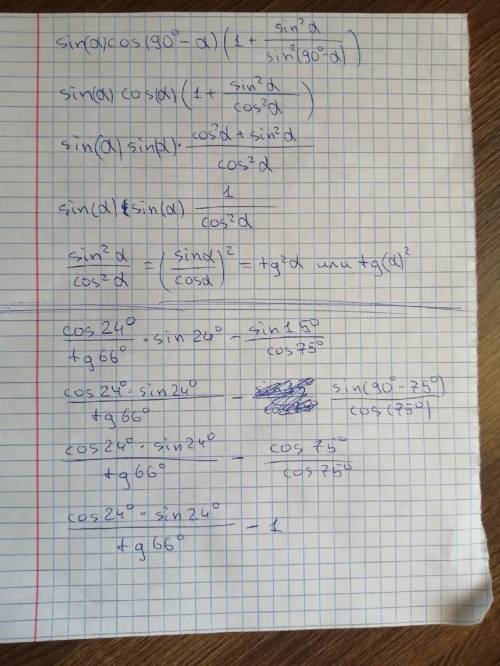 sin(α)cos(90°-α)(1 + sin²α/sin²(90°-α))
sin(α) cos(α)(1 + sin²α/cos²α)
sin(α) sin(α) · (cos²α + sin²α)/cos²α
sin(α) sin(α) 1/cos²α
sin²α/cos²α = (sinα/cosα)² = tg²α или tg(α)²
cos24°/tg66° · sin24° - sin15°/cos75°
cos24° · sin24°/tg66° - sin(90°-75°)/cos(75°)
cos24° · sin24°/tg66° - cos75°/cos75°
cos24° · sin24°/tg66° - 1